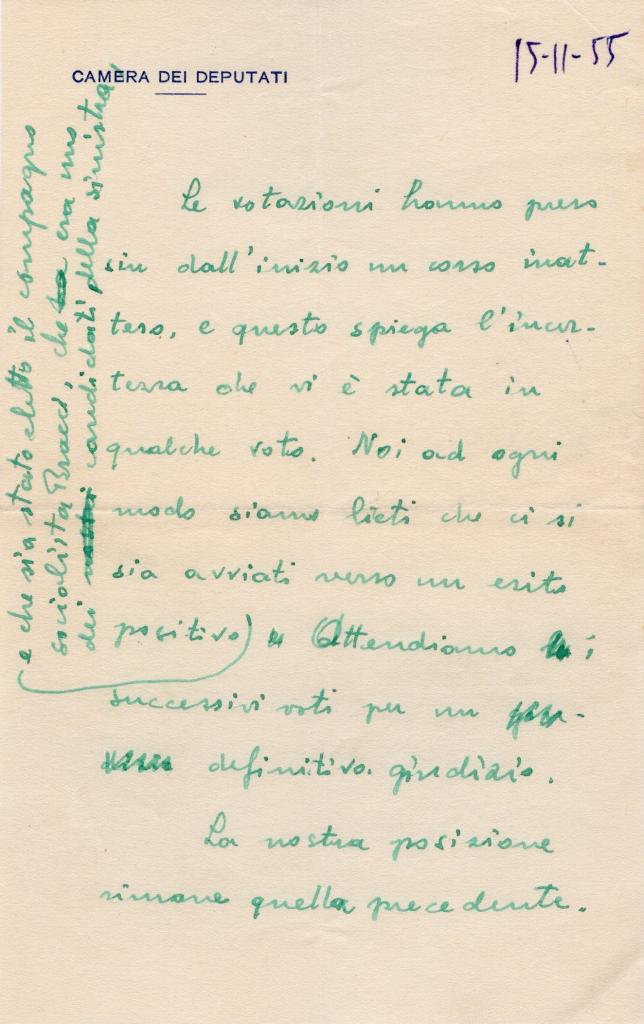 CAMERA DEI DEPUTATI
15-11-55
Le votazioni hanno preso
sin dall'inizio un corso inat-
teso, e questo spiega l'incer-
tezza che vi è stata in
qualche voto. Noi ad ogni
modo siamo lieti che ci si
sia avviati verso un esito
positivo) Attendiamo i
successivi voti per un
definitivo giudizio.
La nostra posizione
rimane quella precedente.
e che sia stato eletto il compagno
socialista Bracci, che era uno
dei candidati della sinistra,